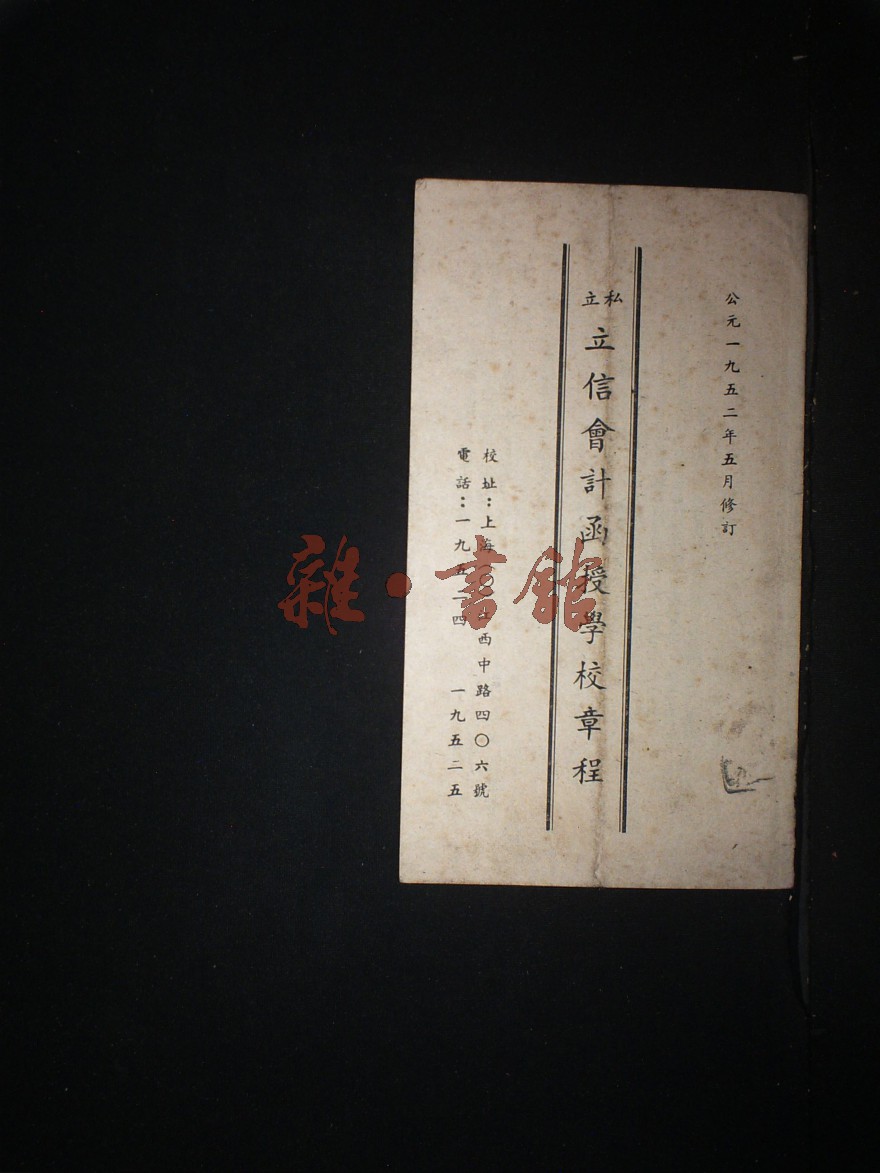 公元一九五二年五月修訂
私立
立信會計函授學校章程
校址：上海 江西中路四〇六號
電話：一九五二四 一九五二五
雜·書館